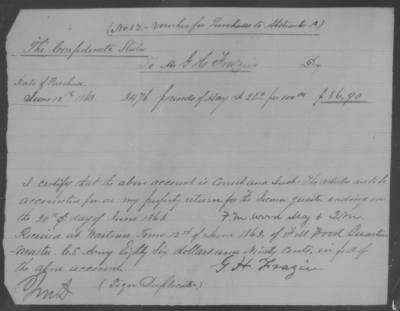 (No 12 - Voucher for Purchases to Abstract A)
The Confederate States
To Mr G. H. Frazier Dr
Date of Purchase
June 12th 1863 3476 pounds of Hay at 250 per 100 lbs $86.90
I certify that the above account is Correct and Just. The articles are to be
accounted for on my property return for the Second quarter ending on
the 30th day of June 1863
F. M. Wood Maj & Q.M.
Received at Wartrace Tenn 12th of June 1863, of F. M. Wood Quarter-
-master C S Army Eighty Six dollars and Ninety Cents, in full of
the above account
G H Frazier
(Sign Duplicates)